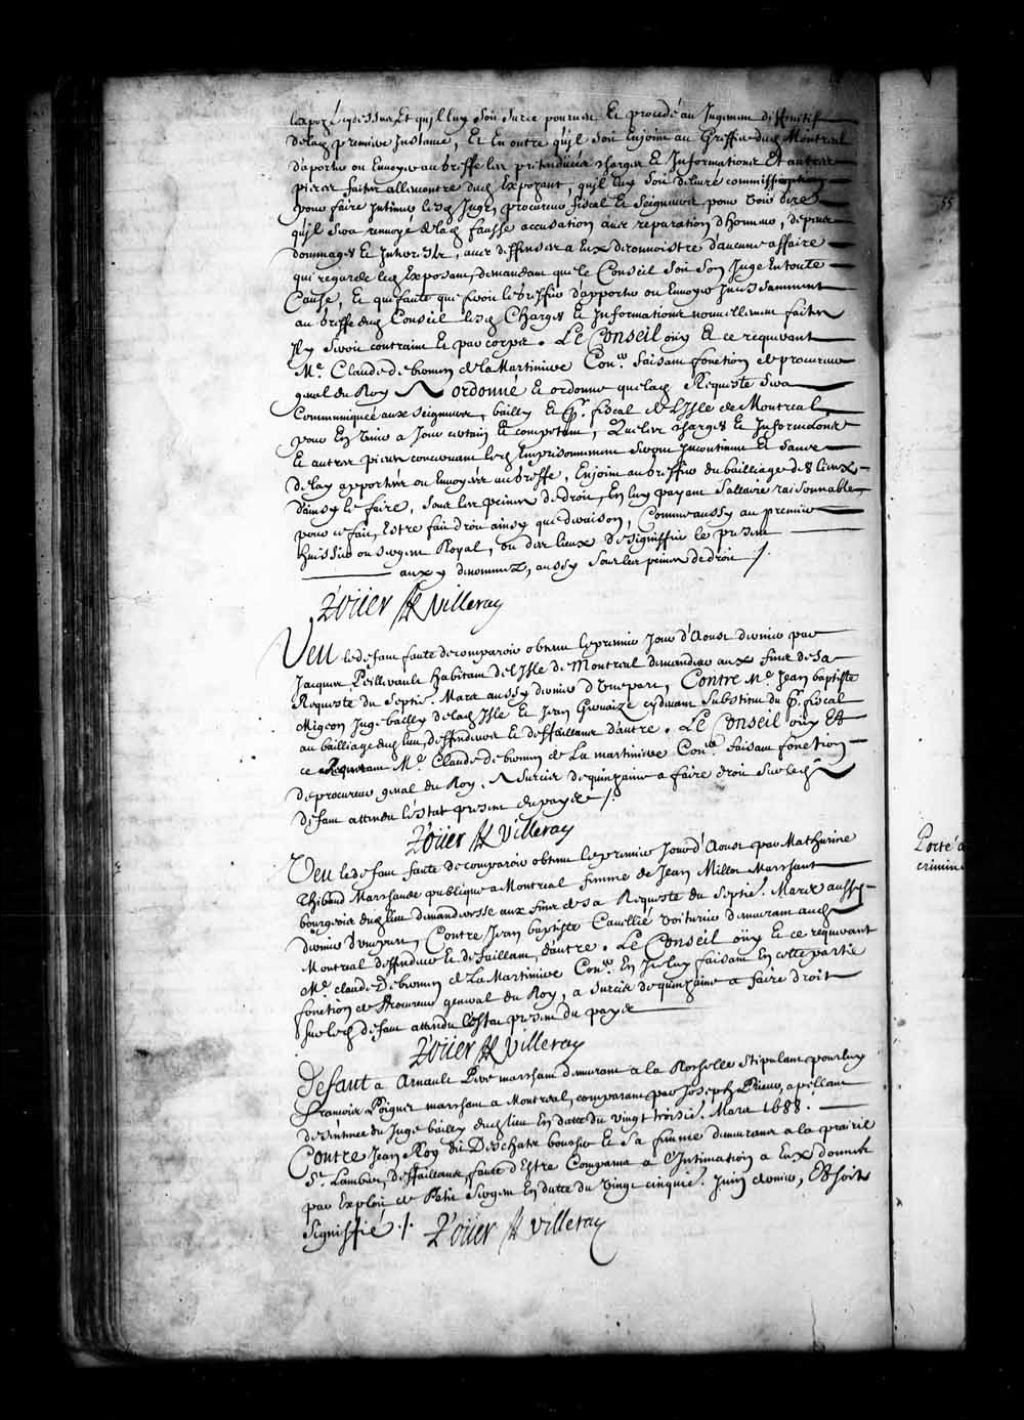 lexpozé cydessus, Et qu'il luy soit sur ce pourveu Et procedé au Jugement diffinitif
de lad premiere Instance, Et En outre qu'il soit Enjoint au Greffier dud Montreal
d'aporter ou Envoyer au Greffe les pretendües charges Et Informations Et autres
pieces faites allencontre dud Expozant, qu'il luy soit delivré commission
pour faire Intimer lesd Juge, procureur fiscal Et Seigneurs pour voir dire
qu'il sera renvoyé de lad fausse accusation avec reparation d'honneur, depens
dommages Et Interests, avec deffenses a Eux de connoistre d'aucune affaire
qui regarde led Exposant, demandant que le Conseil soit son Juge En toute
Cause, Et que faute que feroit le Greffier d'apporter ou Envoyer Incessamment
au Greffe dud Conseil lesd Charges Et Informations nouvellement faites
Il y seroit contraint Et par corps. Le Conseil oüy Et ce requerant
Me. Claude de bermen de la Martiniere Coner. faisant fonction de procureur
gnal du Roy ordonné Et ordonne que lad Requeste sera
Communiquée aux Seigneurs, bailly Et Pr. fiscal de L'Isle de Montreal
pour En venir a Jour certain Et competent, Que les charges Et Informations
Et autres pieces concernant led Emprisonnement seront Incontinent Et sans
delay apportées ou Envoyées au Greffe, Enjoint au Greffier du bailliage des lieux
d'ainsy le faire, sous les peines de droit, En luy payant sallaire raisonnable
pour ce fait, Estre fait droit ainsy que de raison, Comme aussy au premier
huissier ou sergent Royal, ou des lieux de signiffier le present
aux y denommez, aussy sous les peines de droit /.
Roüer de Villeray
Veu le defaut faute de comparoir obtenu le premier Jour d'Aoust dernier par
Jacques Peillereault habitant de l'Isle de Montreal demandeur aux fins de sa
Requeste du Septie. Mars aussy dernier d'une part, Contre Me. Jean baptiste
Migeon Juge bailly de lad Isle Et Jean Gervaize cydevant Substitut du Pr. fiscal
au bailliage dud lieu, deffendeurs Et deffaillans d'autre. Le Conseil oüy Et
ce Requerant Me. Claude de bermen de La martiniere Coner. faisant fonction
de procureur gnal du Roy, A surcis de quinzaine a faire droit sur led
defaut attendu l'estat present du payis /.
Roüer de Villeray
Veu le defaut faute de comparoir obtenu le premier Jour d'Aoust par Mathurine
Thibaud Marchande publique a Montreal femme de Jean Millot Marchant
bourgeois dud lieu demanderesse aux fins de sa Requeste du Septie. Mars aussy
dernier d'une part, Contre Jean baptiste Cavellié voiturier demeurant aud
Montreal deffendeur Et defaillant d'autre. Le Conseil oüy Et ce requerant
Me. claude de bermen de La Martiniere Coner. En Iceluy faisant En cette partie
fonction de Procureur general du Roy, a surcis de quinzaine a faire droit
sur led defaut attendu l'estat present du payis
Roüer de Villeray
Defaut a Arnault Peré marchant demeurant a la Rochelle Stipulant pour luy
francois Poignet marchant a Montreal, comparant par Joseph Prieur apellant
de sentence du Juge bailly dud lieu En datte du vingt troisie. Mars 1688.
Contre Jean Roy dit Deschatz boucher Et sa femme demeurans a la prairie
St. Lambert, deffaillans, faute d'Estre Comparus a l'Intimation a Eux donnée
par Exploit de Petit Sergent En datte du vingt cinquie. Juin dernier, Et soit
Signiffié ./. Roüer de Villeray
55
Porté a
crimine